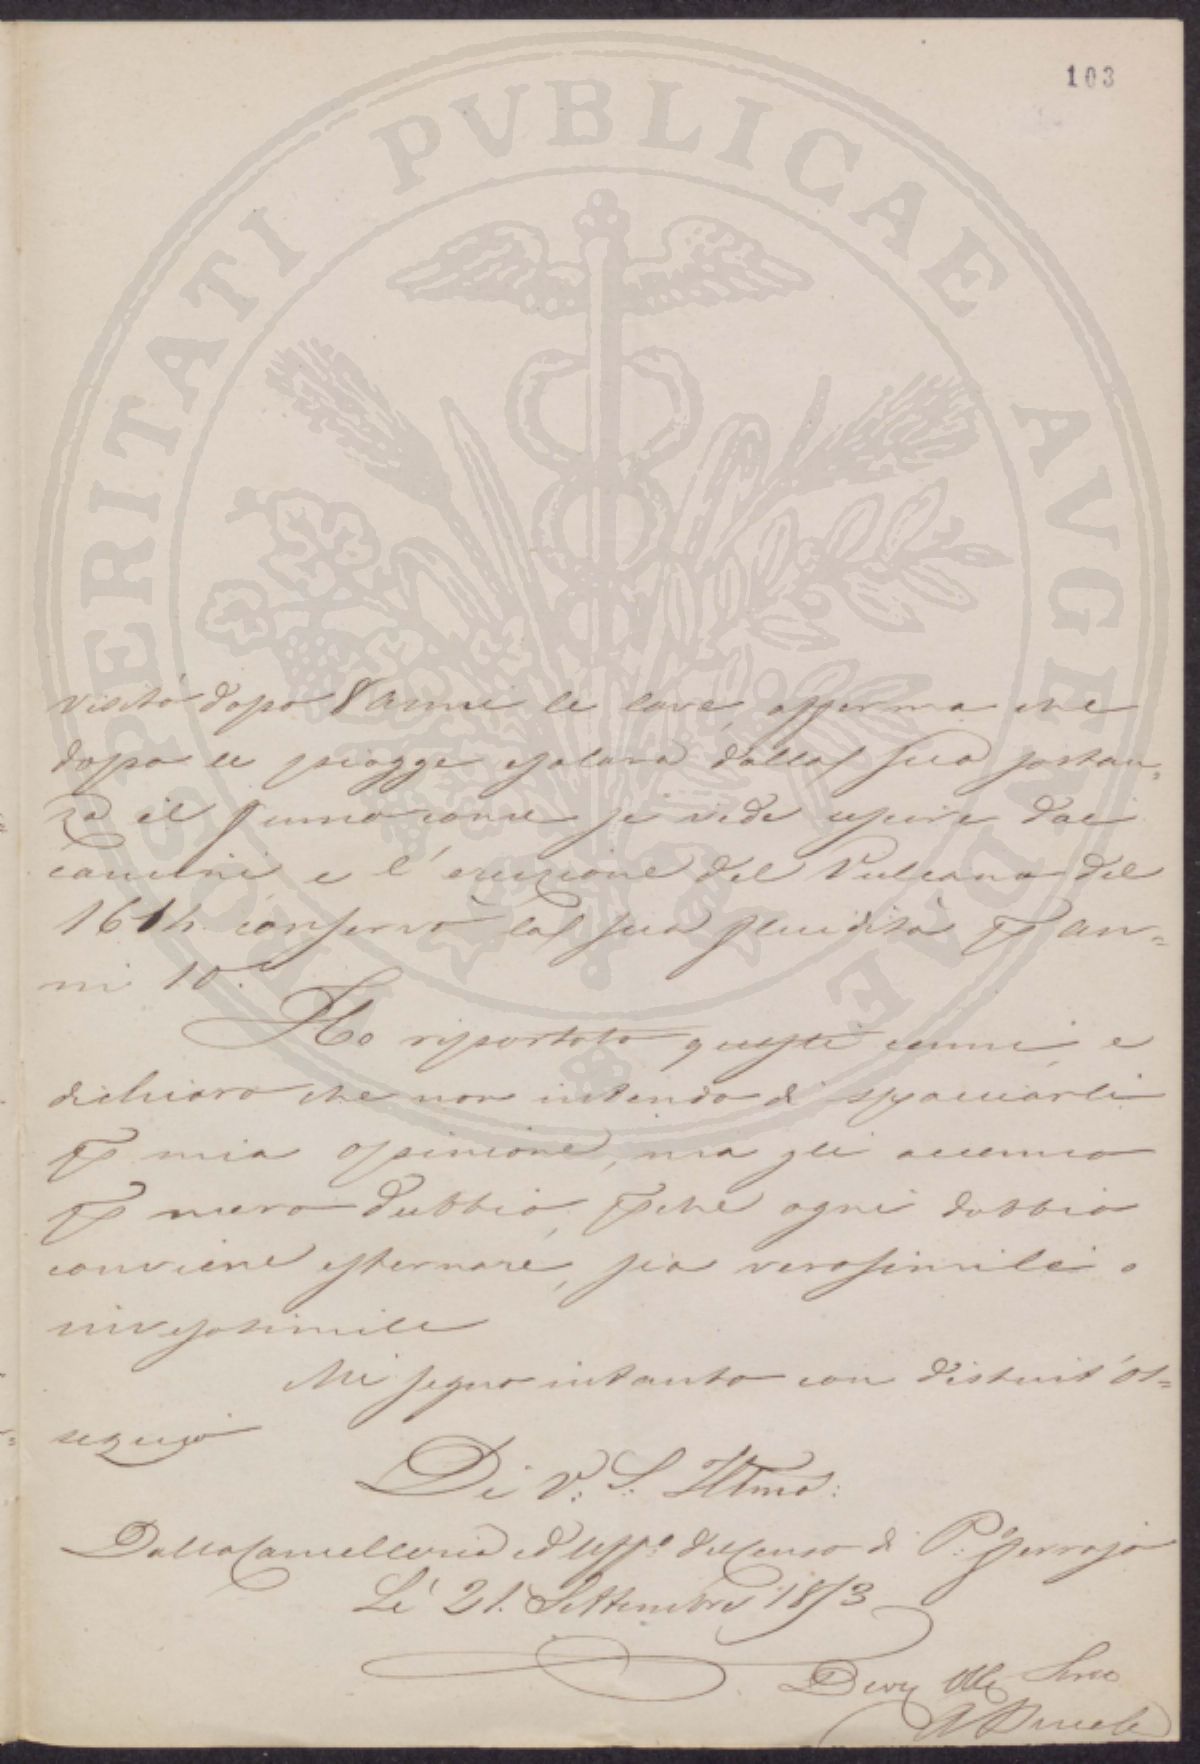 103
PROSPERITATI PVBLICAE AVGENDAE
visitò dopo 8 anni le lave, afferma che
dopo le piogge esalava dalla sua sostan=
za il fumo come si vede uscire dai
camini, e l'eruzione del Vulcano del
1614 conservò la sua fluidità p an=
ni 10.
Ho riportato questi cenni, e
dichiaro che non intendo di spacciarli
p mia opinione, ma gli accenno
p mero dubbio, pche ogni dubbio
conviene esternare, sia verosimile o
inverosimile
Mi segno intanto con distint' os=
sequio
Di V. S. Illma:
Dalla Cancelleria ed Uffo. del Censo di P.
Lì 21. Settembre 1873
Devo Obb Servo